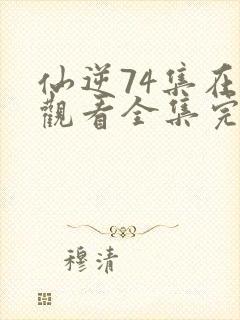 仙逆74集在
觀看全集完
穆清